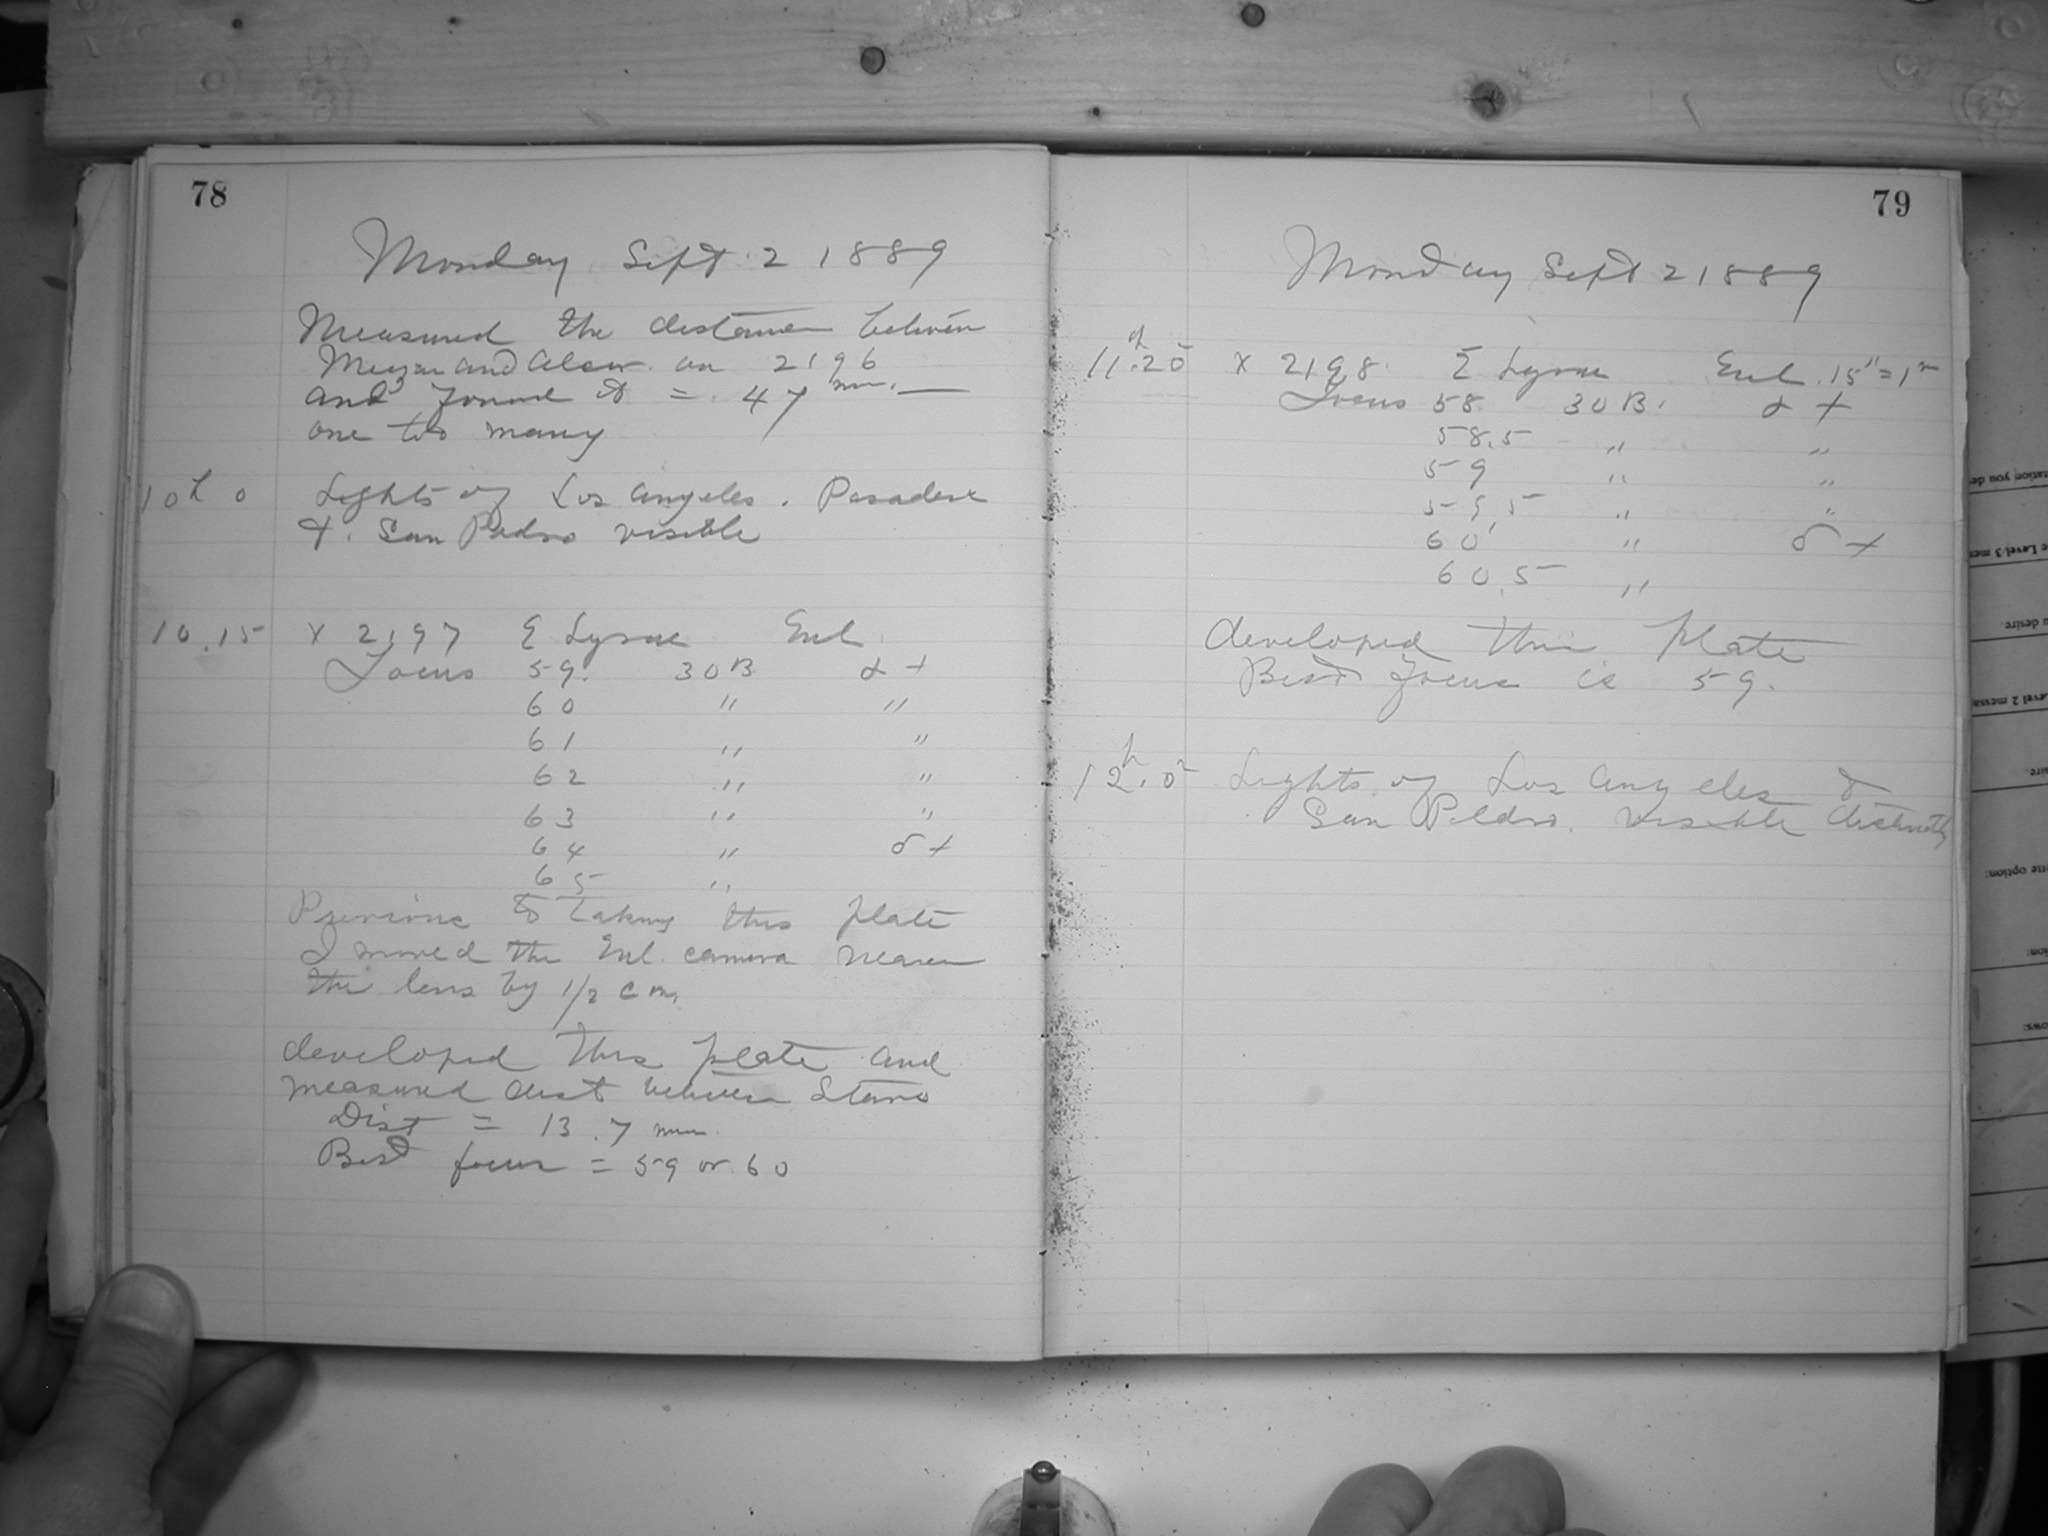 78
Monday Sept 2 1889
Measured the distance between
Mizar and Alcor on 2196
and found it = 47 mm. —
one too many
10h 0 Lights of Los Angeles. Pasadena
&. San Pedro visible
10.15 x 2197 ε Lyrae Enl
Focus 59. 30B α +
60 " "
61 " "
62 " "
63 " "
64 " δ +
65 "
Previous to taking this plate
I moved the Enl. camera nearer
the lens by 1/2 cm,
developed this plate and
measured dist between stars
Dist = 13.7 mm.
Best focus = 59 or 60
79
Monday Sept 2 1889
11h.20 x 2198. Σ Lyrae Enl. 15"=1m
Focus 58 30B. α +
58.5 " "
59 " "
59.5 " "
60 " δ +
60.5 "
developed this plate
Best focus is 59.
12h.0 Lights of Los Angeles &
San Pedro. visible distinctly
ation you de
e Level 3 me
u desire.
Level 2 messa
sire.
tte option:
ion:
ows: